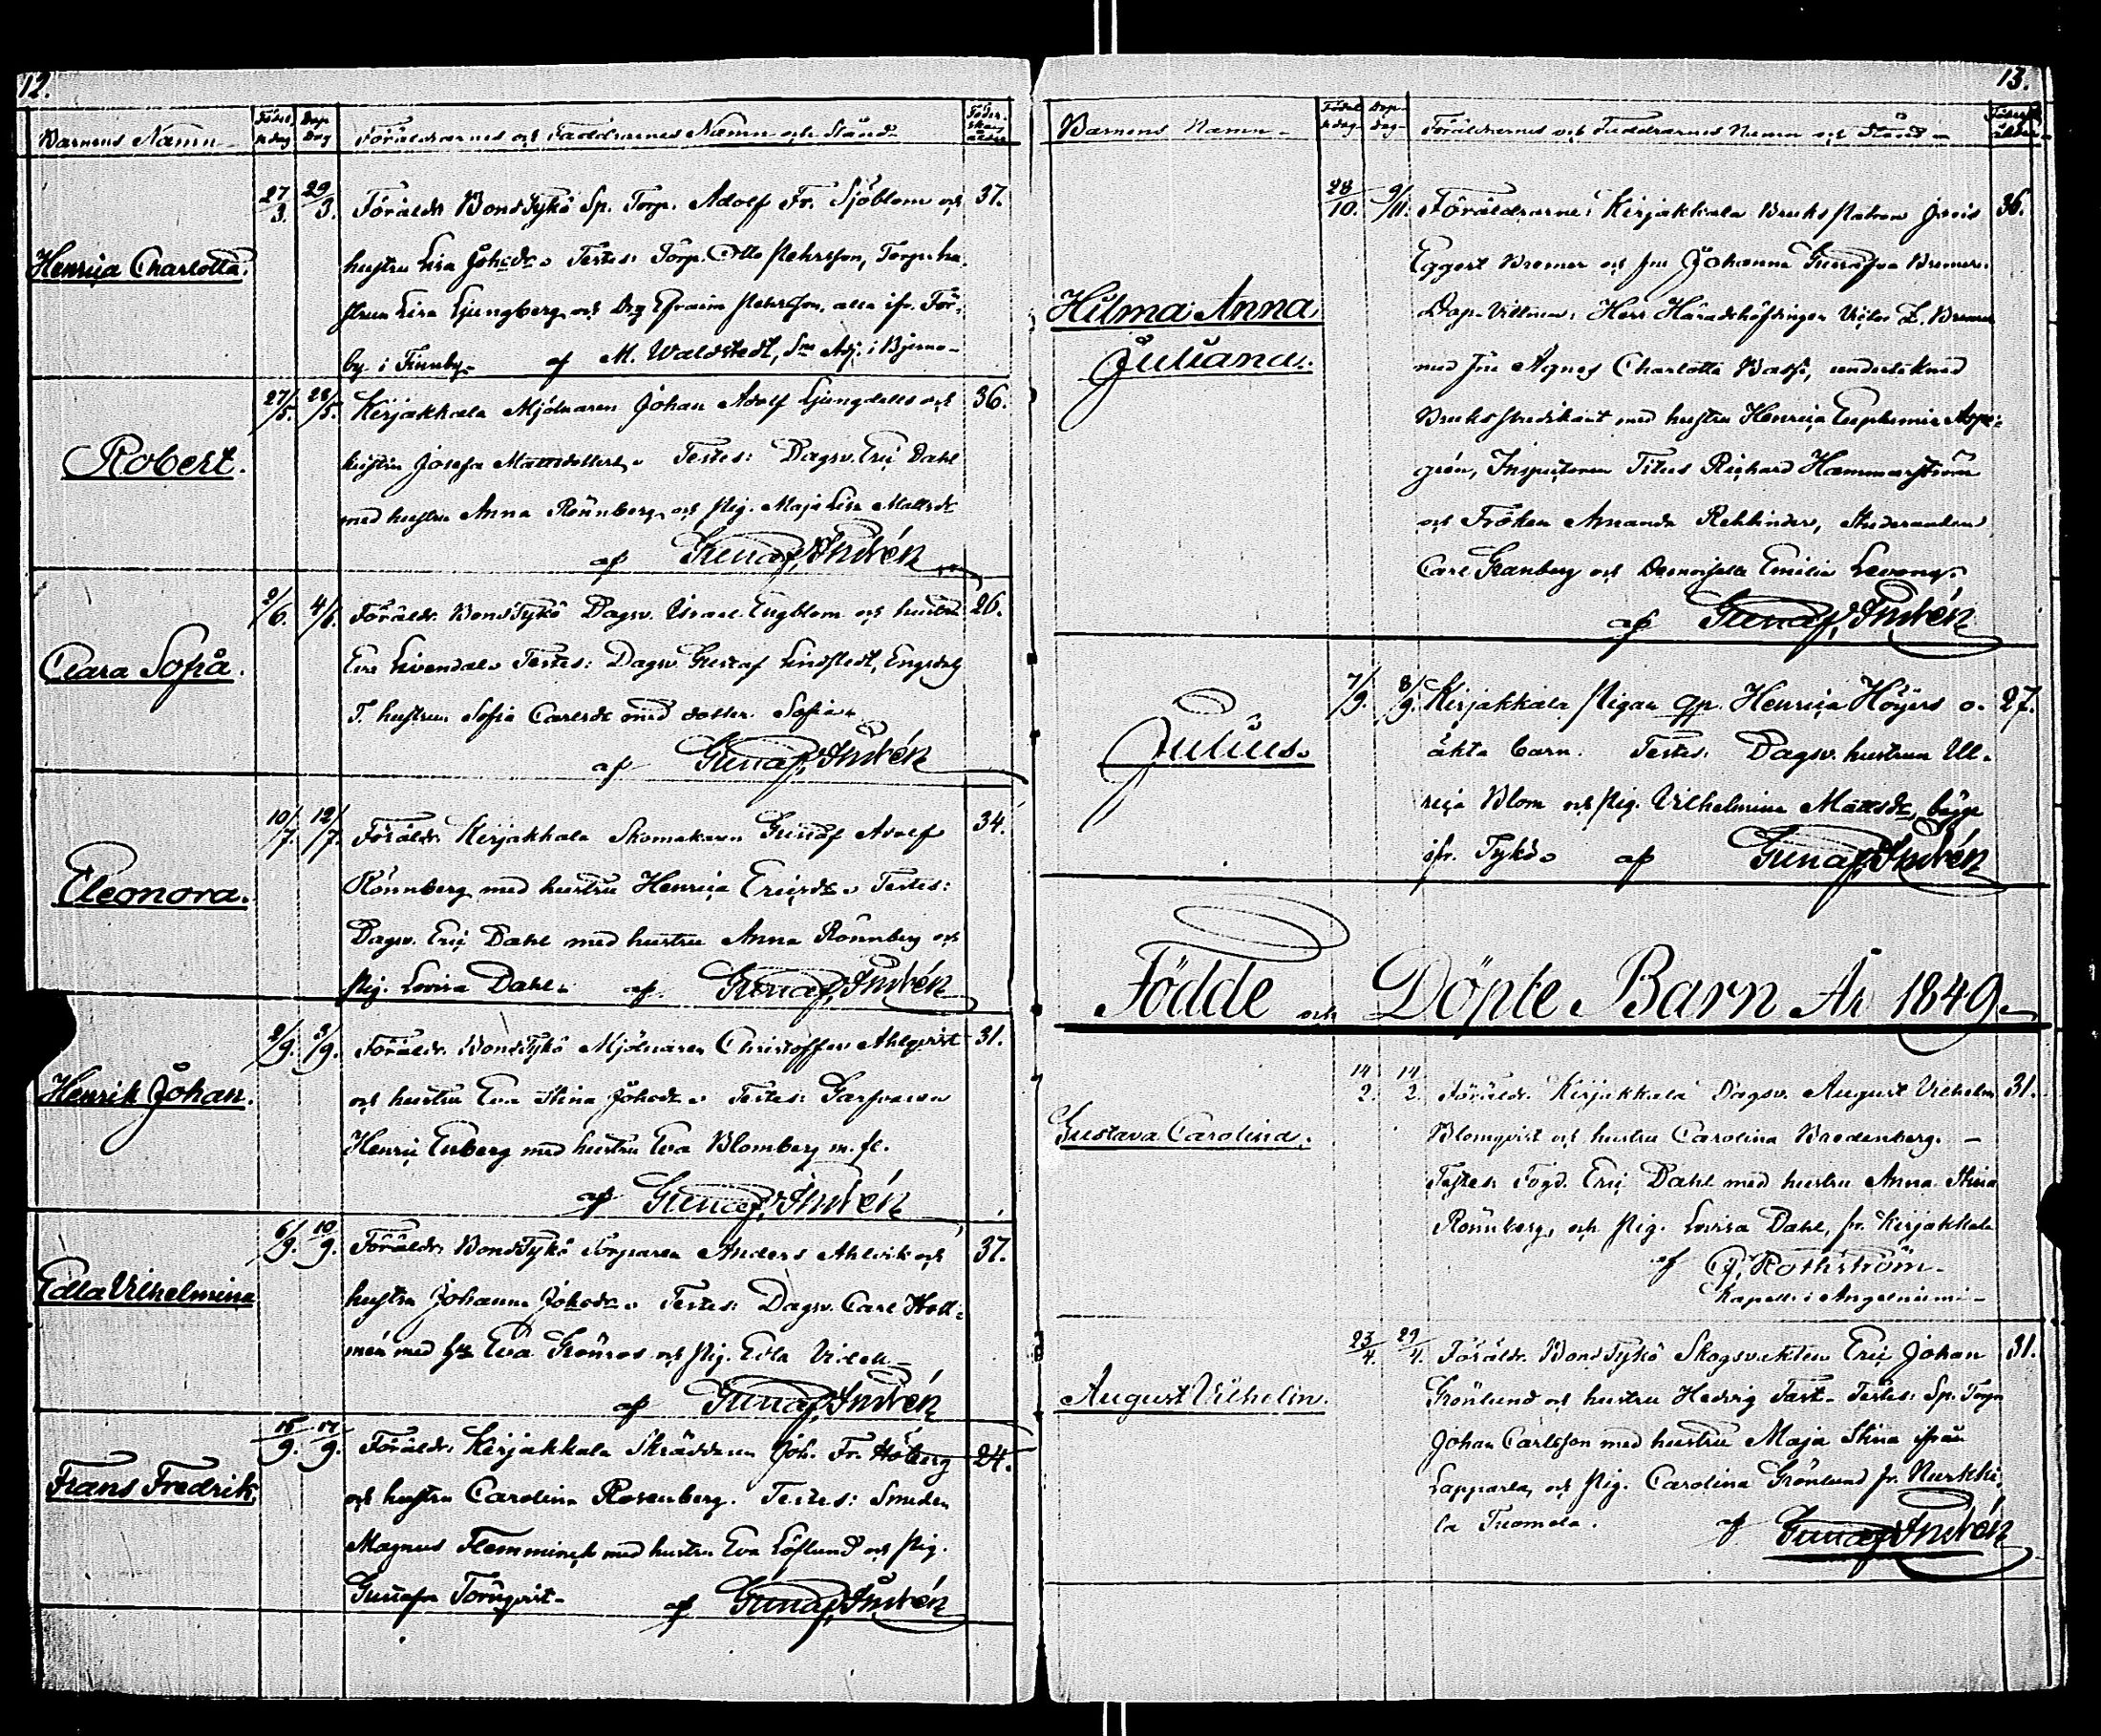 12.
Barnens Namn
Födel
sedag
Dop
Dag
Föräldrarnes och Faddrarnes Namn och Stånd
Föder-
skans
ålder
27/3.
29/3.
Henrica Charlotta.
Föräldr. BondTykö Sp. Torp. Adolf Fr. Sjöblom och
37.
hustru Lisa Johsdr. Testes: Torp. Otto Mehrsson, Torp. hu-
strun Lisa Ljungberg och Drg Efraim Mehrsson, alla ifr. För-
by i Finnby.
af M. Waldstedt, Sm Adj. i Bjerno
27/5.
28/5.
Robert.
Kirjakkala Mjölnaren Johan Adolf Ljungdell och
36.
hustru Josefa Mattsdotter. Testes: Dagsv. Eric Dahl
med hustru Anna Rönnberg och Pig. Maja Lisa Mattsdr
af Gustaf Andrén
2/6.
4/6.
Clara Sofia.
Föräldr. BondTykö Dagsv. Israel Engblom och hustru
26.
Eva Livendal. Testes: Dagsv. Gustaf Lindstedt, Engsdahl
T. hustrun Sofia Carlsdr med dotter Sofia.
af Gustaf Andrén
10/7.
12/7.
Eleonora.
Föräldr. Kirjakkala Skomakaren Gustaf Adolf
34.
Rönnberg med hustru Henrica Ericsdr. Testes:
Dagsv. Eric Dahl med hustru Anna Rönnberg och
Pig. Lovisa Dahl. af Gustaf Andrén
2/9.
3/9.
Henrik Johan.
Föräldr. BondTykö Mjölnaren Christoffer Ahlqvist
31.
och hustru Eva Stina Johsdr. Testes: Garfvaren
Henric Enberg med hustru Eva Blomberg m. fl.
af Gustaf Andrén
6/9.
10/9.
Edla Vilhelmina
Föräldr. BondTykö Torparen Anders Ahlvik och
37.
hustru Johanna Johsdr. Testes: Dagsv. Carl Holl-
mén med hu Eva Grönros och Pig. Edla
af Gustaf Andrén
15/9.
17/9.
Frans Fredrik.
Föräldr. Kirjakkala Skräddaren Joh. Fr. Höberg
24.
och hustru Carolina Rosenberg. Testes: Smeden
Magnus Flemminck med hustru Eva Löflund och Pig.
Gustafva Törnqvist. af Gustaf Andrén
13.
Barnens Namn
Födel
sedag
Dop
dag
Föräldrarnes och Faddrarnes Namn och Stånd
Födersk.
ålder
28/10.
9/11.
Hilma Anna
Juliana.
Föräldrarne: Kirjakkala Bruks Patron Josis
36.
Eggert Bremer och fru Johanna Gustafva Bremer.
Dop-Vittnen: Herr Häradshöfdingen Victor Z. Bremer
med fru Agnes Charlotta Basse, undertecknad
Bruks predikant med hustru Henrica Euphemia Aspe-
grén, Inspectoren Titus Richard Hammarström
och Fröken Amanda Rehbinder, Studeranden
Carl Granberg och Demoiselle Emilia
af Gustaf Andrén
7/9.
8/9.
Julius.
Kirjakkala Pigan qp. Henrica Höijers o-
27.
äkta barn. Testes: Dagsv. hustrun Ul-
rica Blom och Pig. Vilhelmina Mattsdr, bägge
ifr. Tykö. af Gustaf Andrén
Födde och Döpte Barn År 1849.
14/2.
14/2.
Gustava Carolina.
Föräldr. Kirjakkala Dagsv. August Vilhelm
31.
Blomqvist och hustru Carolina Bredenberg. -
Testes: Fogd. Eric Dahl med hustru Anna Stina
Rönnberg, och Pig. Lovisa Dahl, fr. Kirjakkala
af G. Rothström.
Kapell. i Angelniemi
23/4.
29/4.
August Vilhelm.
Föräldr. BondTykö Skogsvakten Eric Johan
31.
Grönlund och hustru Hedvig Tast. Testes: Sp. Torp
Johan Carlsson med hustru Maja Stina ifrån
Lapparla, och Pig. Carolina Grönlund fr. Nurkki-
la Tuomola. af Gustaf Andrén